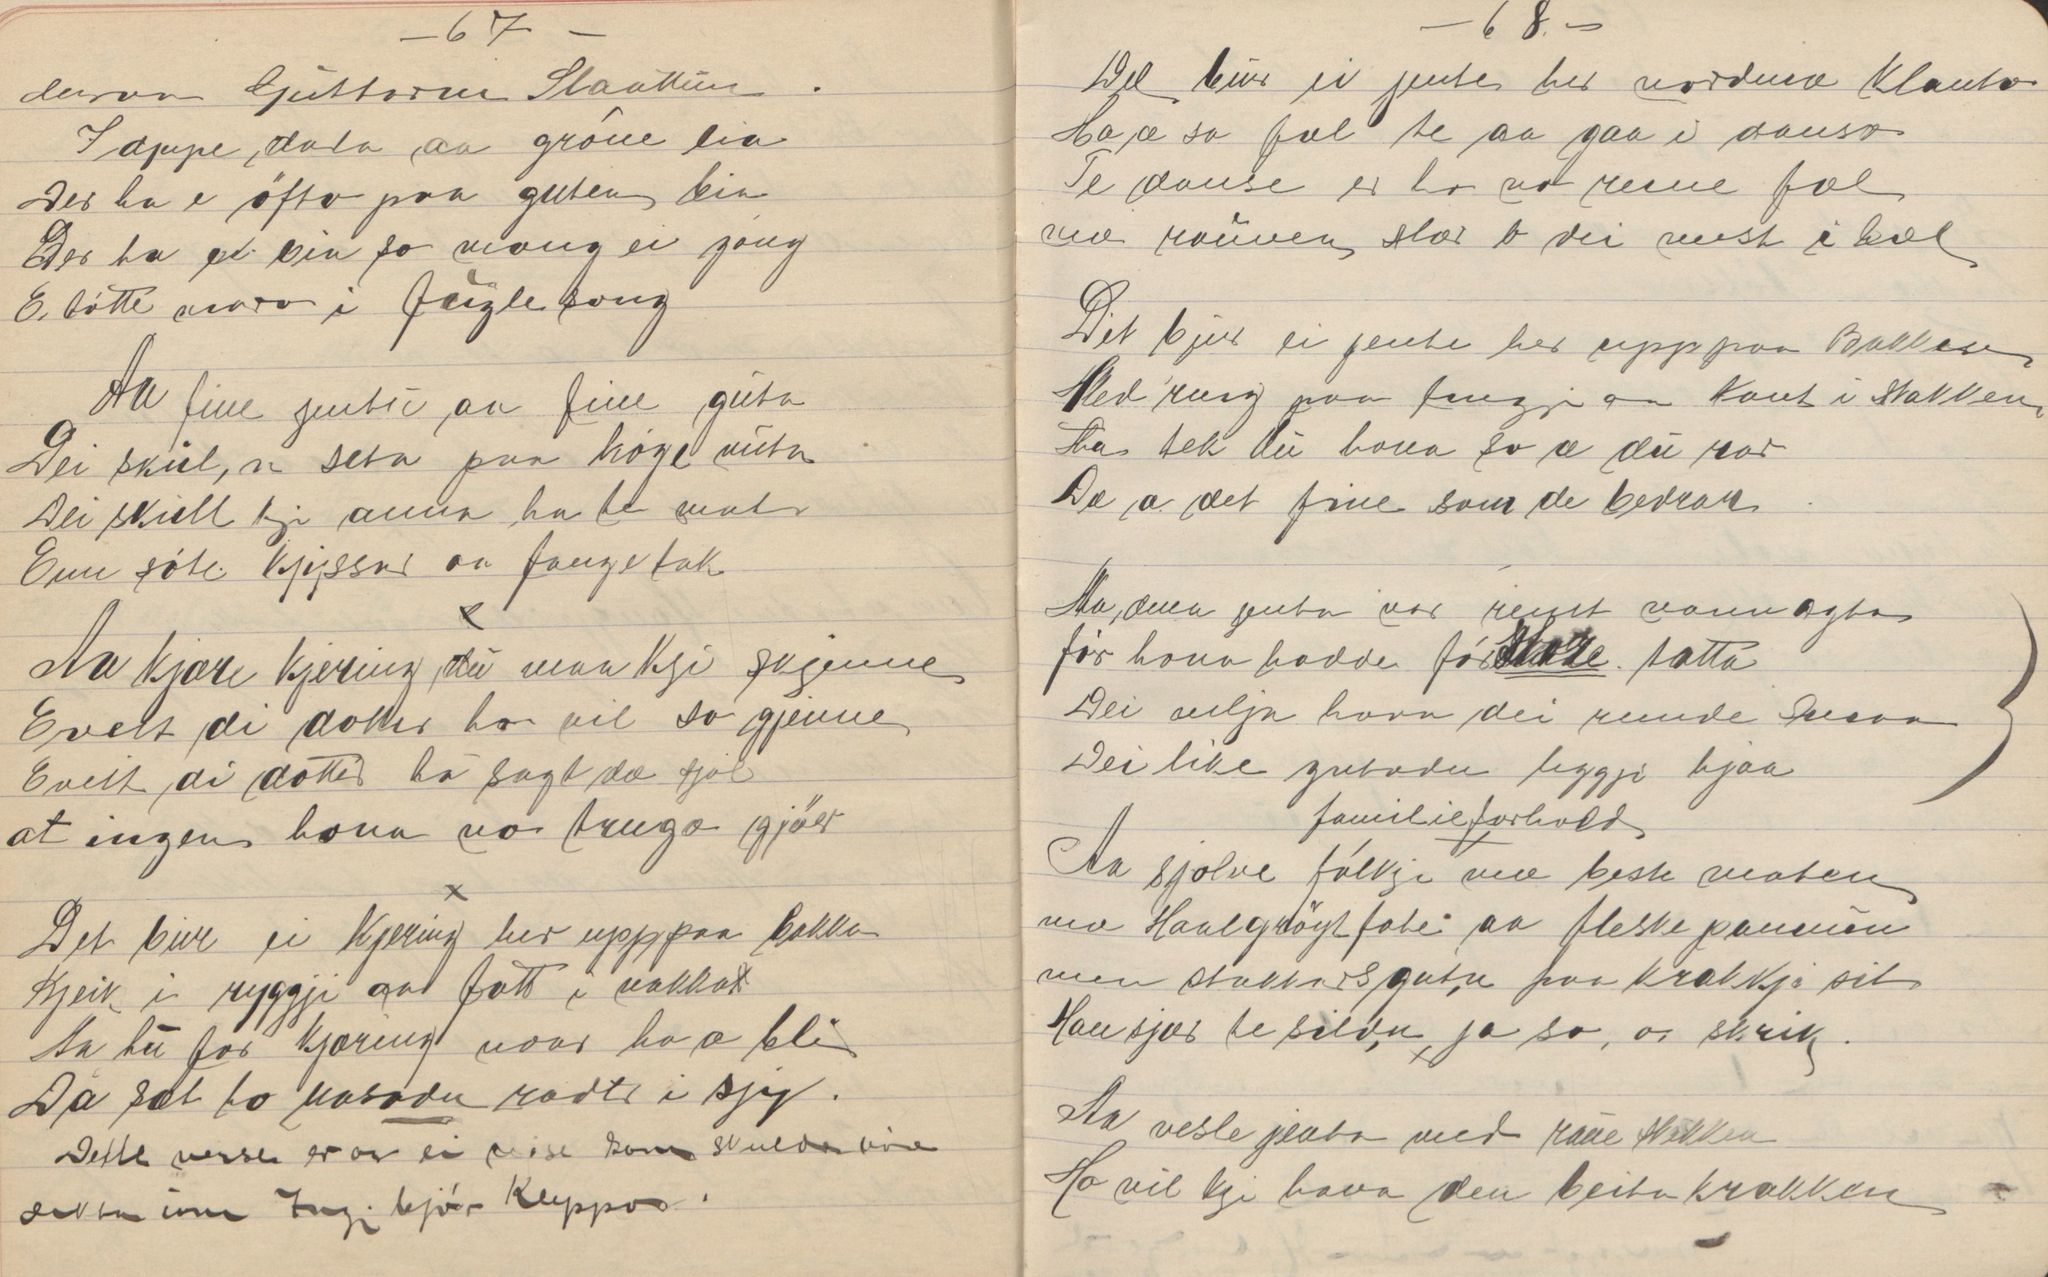 - 67 -
Guttorm Slaattun.
I djupe dala aa gröne lia
Der ha e öfta paa guten bia
Der ha e bia so mang ei gong
E totte vara i fuglesong
Aa fine jentu aa fine guta
Dei skul, n seta paa höge nuta
Dei skull kji anna ha te mat
Enn söte kjyssar aa fangetak
x
Aa kjære kjering, du maa kji skjenne
E veit di dotter ho vil so gjenne
E veit di dotter ha sagt dæ sjøl
at ingen hona no truga gjöer
x
Det bur ei kjering her upp paa bakka
Kjeik i ryggji aa fatt i nakka
Aa tu for kjæring naar ho æ bli
Da sat to i sjig.
Dette verse er or ei vise som skulde væra
dikta um Ingj. Kleppo.
- 68. -
Dæ bur ei jente her nordmæ Klanta
Ho æ so fæl te aa gaa i dansa
Te danse er ho no reine fæl
mæ rauven slær o dei mest i hæl
Det bjur ei jente her upp paa Bakken
Med ring paa fingji aa kant i stakken
Aa tek du hona so æ du rar
Dæ æ det fine som de bedrar
Aa, denna jenta var reint vannagta
för hona hadde för tatta
Dei vilja hava dei runde
Dei like gutadn liggji hjaa
familieforhold
x
Aa sjolve folkji mæ beste maten
mæ Haalgröytfate aa fleskepannun
men stakkars gutn paa krakkji sit
Han sjær te sildn, ja so, o skrik.
x
Aa vesle jenta med raue stakken
Ho vil kji hava den beita krakken